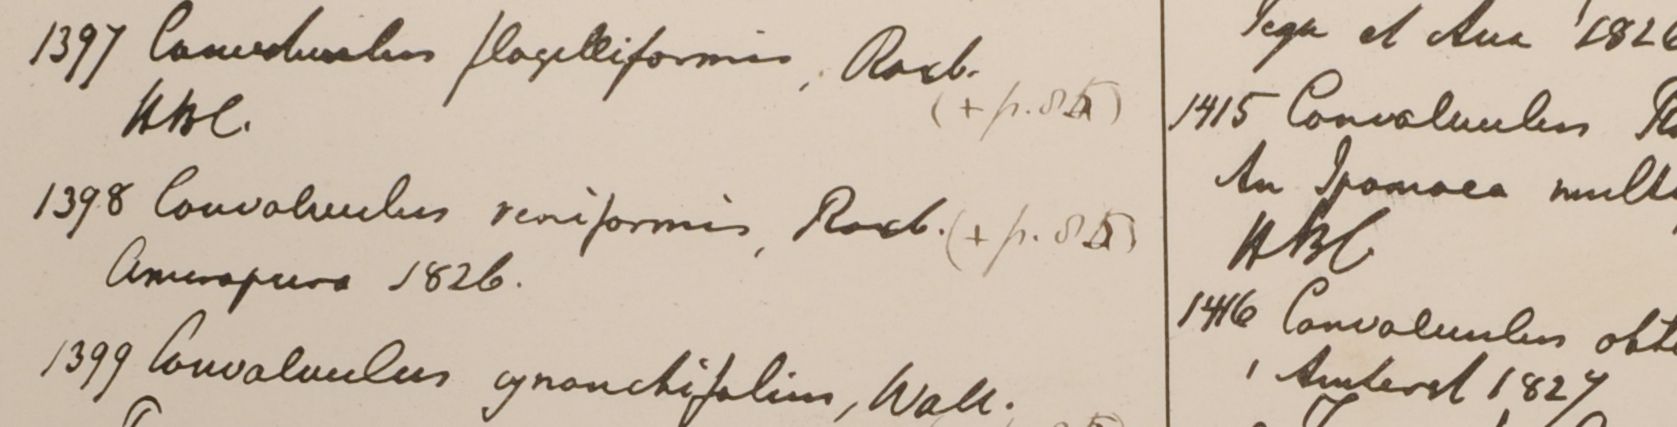 1397 Convolvulus flagelliformis, Roxb.
(+ p. 85)
HBC.
1398 Convolvulus reniformis, Roxb. (+ p. 85)
Amurapura 1826.
1399 Convolvulus cynanchifolius, Wall.
Segn et Ava 1826
1415 Convolvulus
An Ipomaea mult
HBC
1416 Convolvulus obt
Amherst 1827